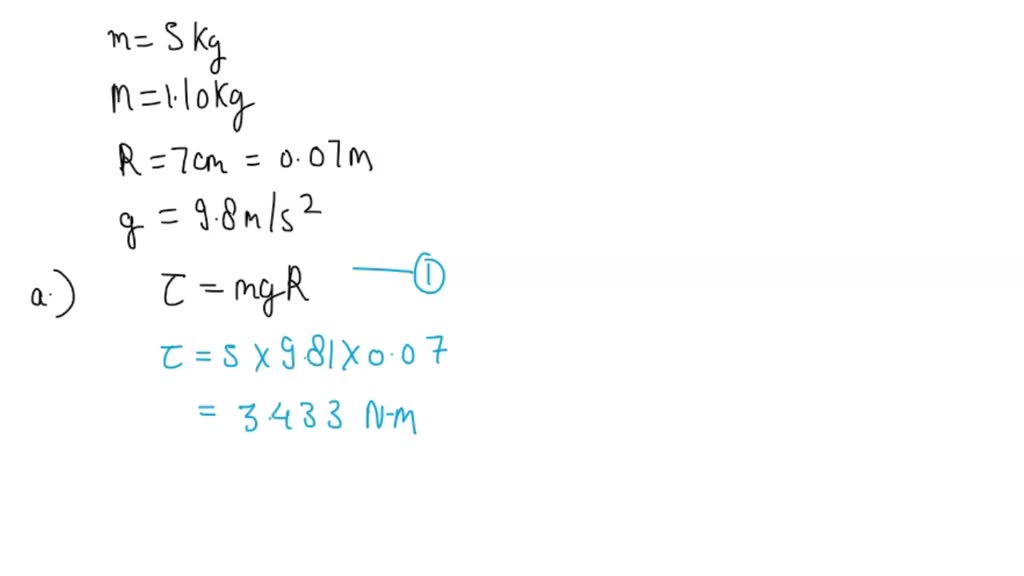 m = 5 kg
M = 1.10 kg
R = 7 cm = 0.07 m
g = 9.8 m/s²
a.) τ = mgR — ①
τ = 5 × 9.81 × 0.07
= 3.433 N-m